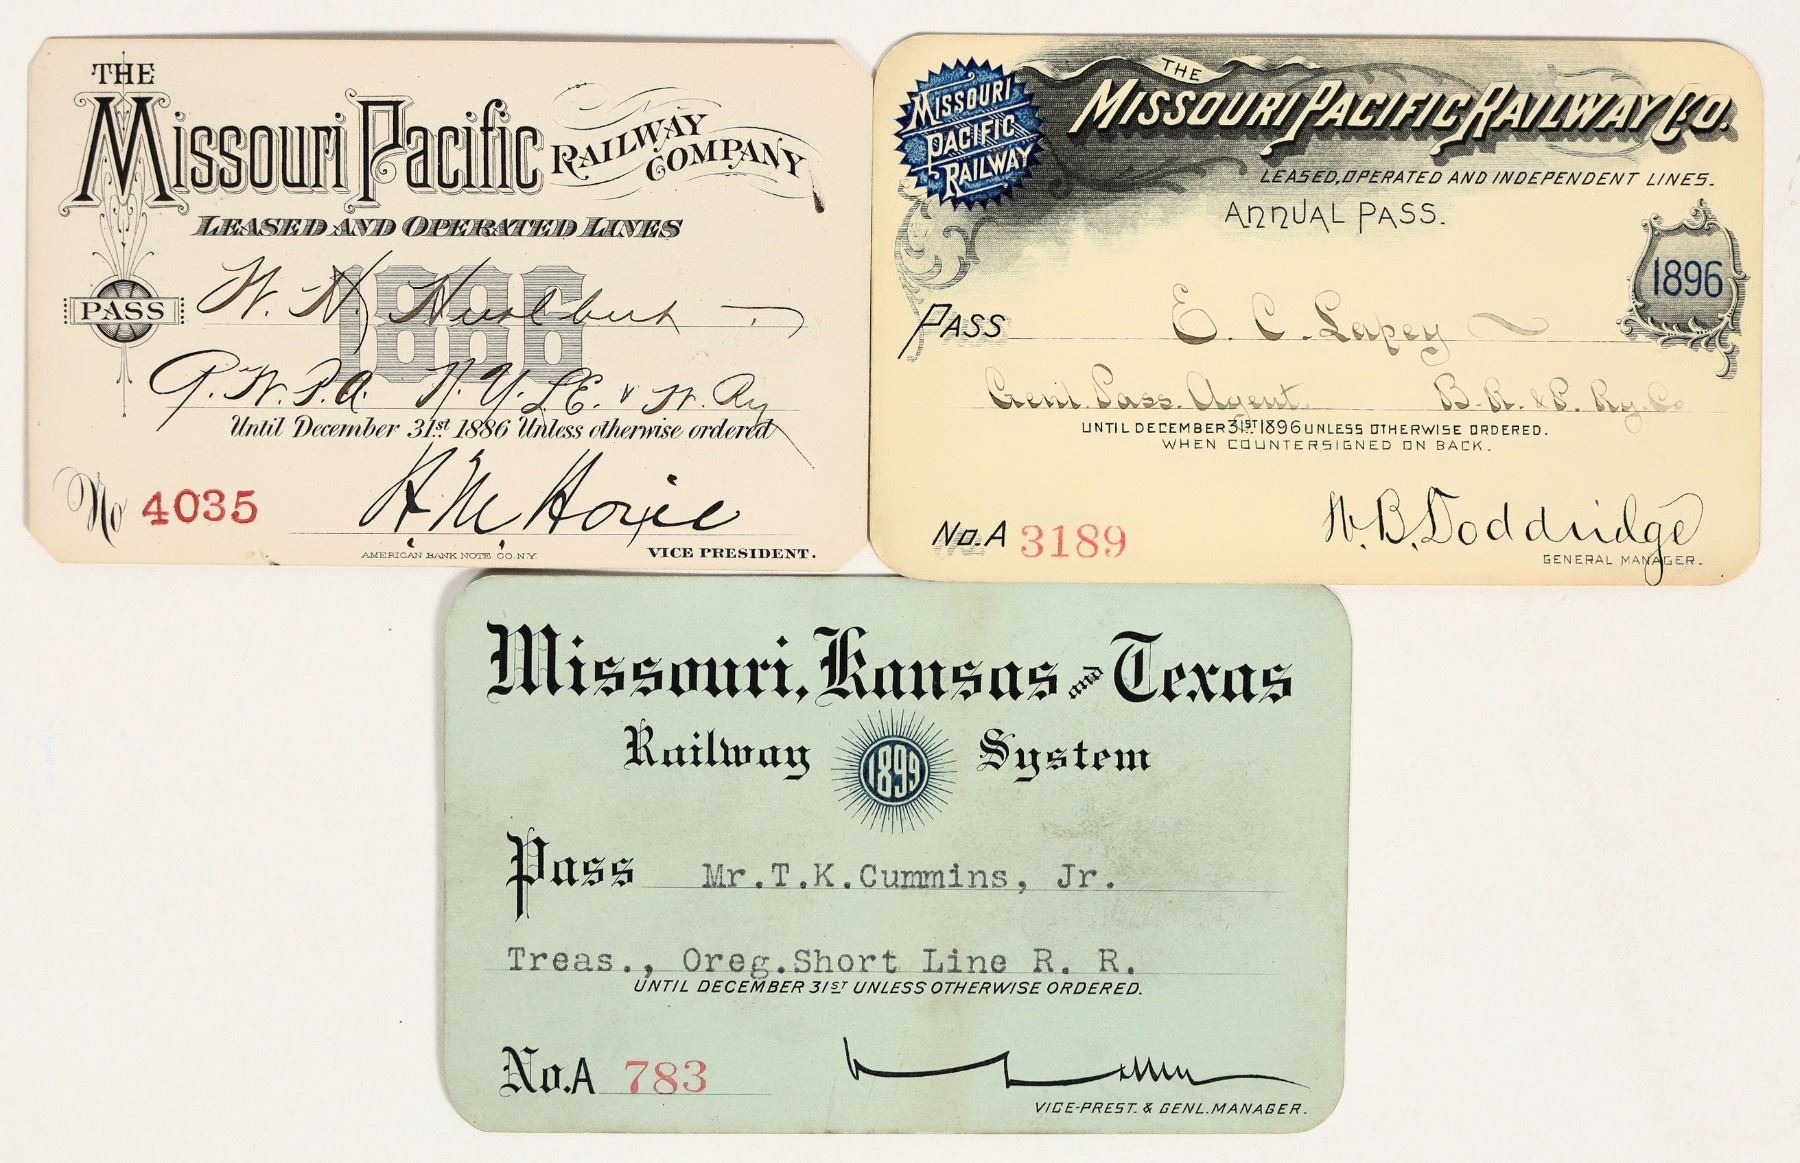 THE
Missouri Pacific RAILWAY COMPANY
LEASED AND OPERATED LINES
1886
PASS W. H. Hurlburt
G. W. P. A. N. Y. L. E. & W. Ry
Until December 31st 1886 Unless otherwise ordered
No 4035 H. M. Hoxie
AMERICAN BANK NOTE CO. N.Y. VICE PRESIDENT.
MISSOURI PACIFIC RAILWAY
THE
MISSOURI PACIFIC RAILWAY CO.
LEASED, OPERATED AND INDEPENDENT LINES.
ANNUAL PASS.
1896
PASS E. C. Lapey
Genl. Pass. Agent. B. R. & P. Ry. Co
UNTIL DECEMBER 31ST 1896 UNLESS OTHERWISE ORDERED.
WHEN COUNTERSIGNED ON BACK.
No. A 3189 W. B. Doddridge
GENERAL MANAGER.
Missouri, Kansas and Texas
Railway 1899 System
Pass Mr.T.K.Cummins, Jr.
Treas., Oreg.Short Line R. R.
UNTIL DECEMBER 31ST UNLESS OTHERWISE ORDERED.
No. A 783
VICE-PREST. & GENL. MANAGER.